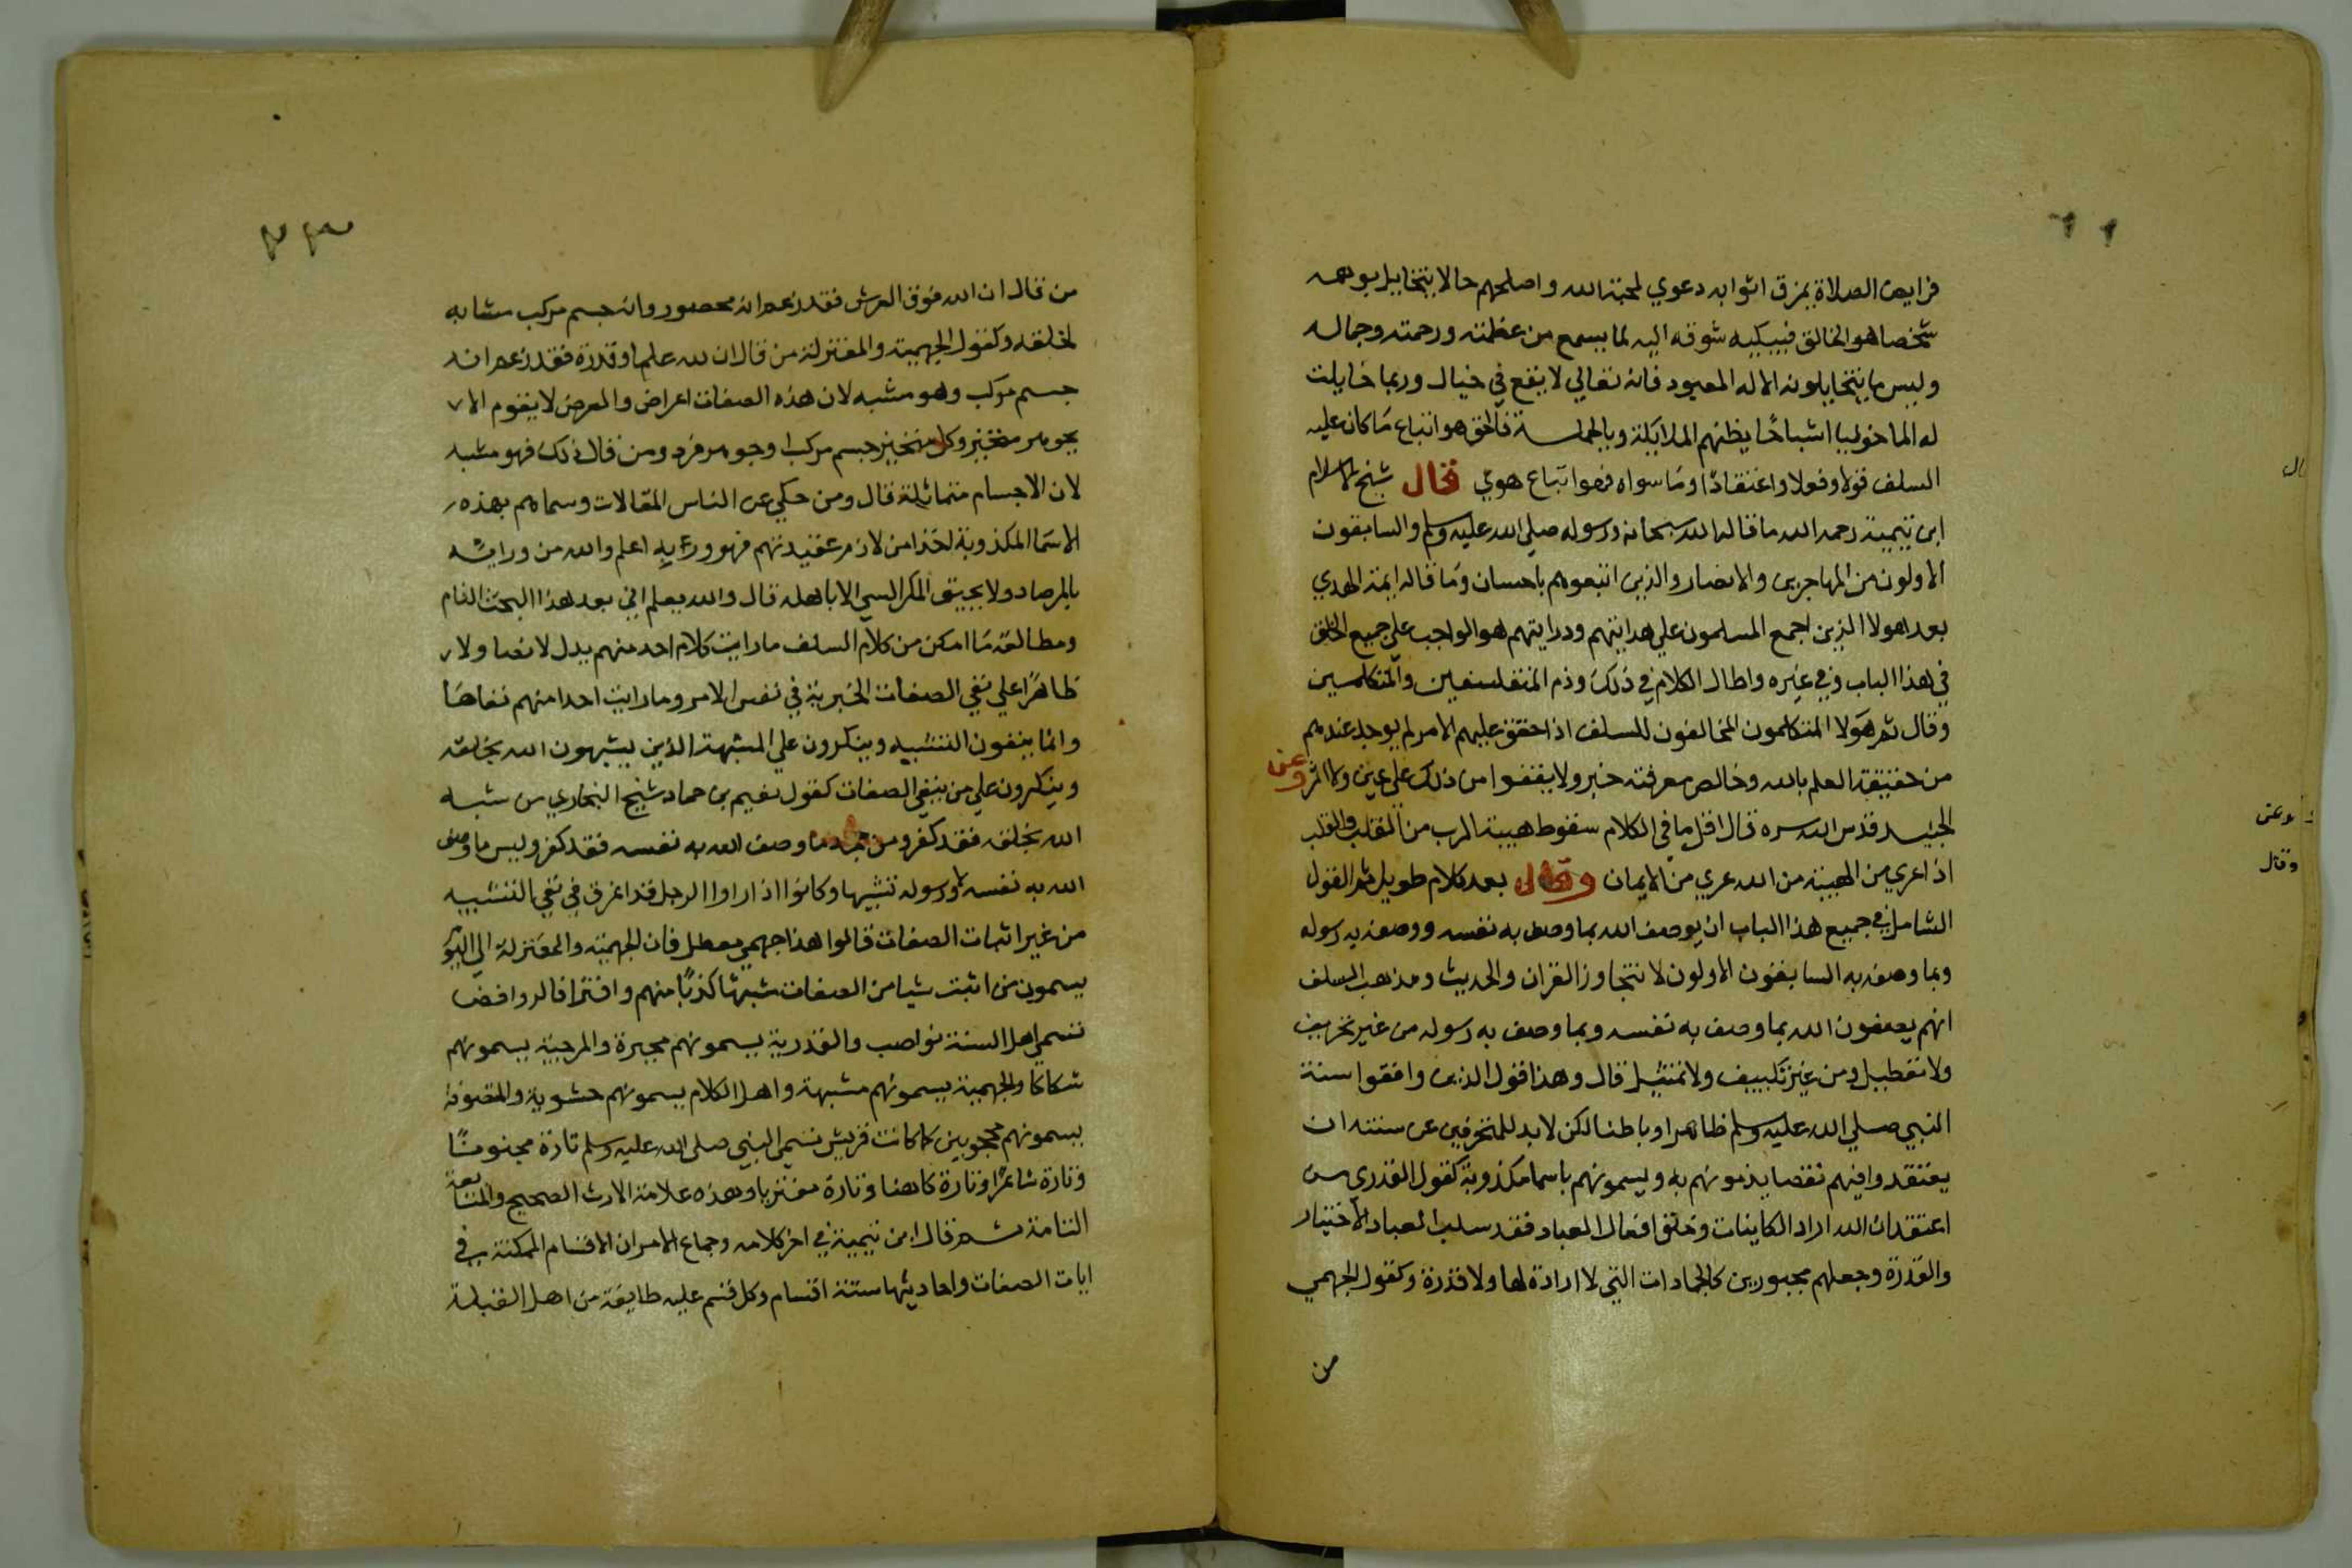 فرايض الصلاة يمزق اثوابه دعوي لمحبة الله واصلحهم حالا يتخايل بوهمه
شخصا هو الخالق فيبكيه شوقه اليه لما يسمع من عظمته ورحمته وجماله
وليس ما يتخايلونه الاله المعبود فانه تعالي لا يقع في خيال وربما خايلت
له الماخوليا اشباحا يظنهم الملايكة وبالجملة فالحق هو اتباع ما كان عليه
السلف قولا وفعلا واعتقادا وما سواه فهو اتباع هوي قال شيخ الاسلام
ابن تيمية رحمه الله ما قاله الله سبحانه ورسوله صلي الله عليه وسلم والسابقون
الاولون من المهاجرين والانصار والذين اتبعوهم باحسان وما قاله ايمة الهدي
بعد هولا الذين اجمع المسلمون علي هدايتهم ودرايتهم هو الواجب علي جميع الخلق
في هذا الباب وفي غيره واطال الكلام في ذلك وذم المتفلسفين والمتكلمين
وقال ثم هولا المتكلمون المخالفون للسلف اذا حقق عليهم الامر لم يوجد عندهم
من حقيقة العلم بالله وخالص معرفته خبر ولا يقفوا من ذلك علي عين ولا اثر وعن
الجنيد قدس الله سره قال اقل ما في الكلام سقوط هيبة الرب من القلب والقلب
اذا عري من الهيبة من الله عري من الايمان وقال بعد كلام طويل ثم القول
الشامل في جميع هذا الباب ان يوصف الله بما وصف به نفسه ووصفه به رسوله
وبما وصفه به السابقون الاولون لا نتجاوز القران والحديث ومذهب السلف
انهم يصفون الله بما وصف به نفسه وبما وصف به رسوله من غير تحريف
ولا تعطيل ومن غير تكييف ولا تمثيل قال وهذا قول الذين وافقوا سنة
النبي صلي الله عليه وسلم ظاهرا وباطنا لكن لا بد للمنحرفين عن سنته ان
يعتقدوا فيهم نقصا يذمونهم به ويسمونهم باسما مكذوبة كقول القدري من
اعتقد ان الله اراد الكاينات وخلق افعال العباد فقد سلب العباد الاختيار
والقدرة وجعلهم مجبورين كالجمادات التي لا ارادة لها ولا قدرة وكقول الجهمي
من
وعن
وقال
٣٣
من قال ان الله فوق العرش فقد زعم انه محصور وانه جسم مركب مشابه
لخلقه وكقول الجهمية والمعتزلة من قال ان لله علما وقدرة فقد زعم انه
جسم مركب وهو مشبه لان هذه الصفات اعراض والعرض لا يقوم الا
بجوهر متحيز وكل متحيز جسم مركب او جوهر فرد ومن قال ذلك فهو مشبه
لان الاجسام متماثلة قال ومن حكي عن الناس المقالات وسماهم بهذه
الاسما المكذوبة اخذا من لازم عقيدتهم فهو وربه اعلم والله من ورايه
بالمرصاد ولا يحيق المكر السي الا باهله قال والله يعلم اني بعد هذا البحث التام
ومطالعة ما امكن من كلام السلف ما رايت كلام احد منهم يدل لا نصا ولا
ظاهرا علي نفي الصفات الخبرية في نفس الامر وما رايت احدا منهم نفاها
وانما ينفون التشبيه وينكرون علي المشبهة الذين يشبهون الله بخلقه
وينكرون علي من ينفي الصفات كقول نعيم بن حماد شيخ البخاري من شبه
الله بخلقه فقد كفر ومن جحد ما وصف الله به نفسه فقد كفر وليس ما وصف
الله به نفسه ورسوله تشبيها وكانوا اذا راوا الرجل قد اغرق في نفي التشبيه
من غير اثبات الصفات قالوا هذا جهمي معطل فان الجهمية والمعتزلة الي اليوم
يسمون من اثبت شيا من الصفات مشبها كذبا منهم وافترا فالروافض
تسمي اهل السنة نواصب والقدرية يسمونهم مجبرة والمرجية يسمونهم
شكاكا والجهمية يسمونهم مشبهة واهل الكلام يسمونهم حشوية والمتصوفة
يسمونهم محجوبين كما كانت قريش تسمي النبي صلي الله عليه وسلم تارة مجنونا
وتارة شاعرا وتارة كاهنا وتارة مفتريا وهذه علامة الارث الصحيح والمتابعة
التامة ثم قال ابن تيمية في اخر كلامه وجماع الامر ان الاقسام الممكنة في
ايات الصفات واحاديثها ستة اقسام وكل قسم عليه طايفة من اهل القبلة